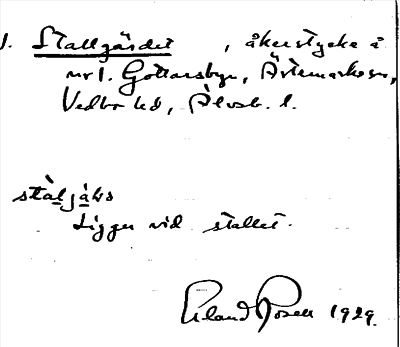 1. Stallgärdet, åkerstycke å
nr 1. Gottarsbyn, Ärtemarks sn,
Vedbo hd, Älvsb. l.
Ligger vid stallet.
Erland Rosell 1929.